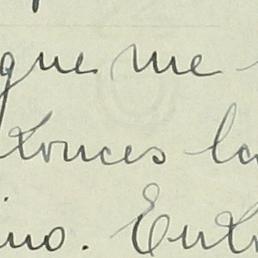 que me
tonces la
ino. Ent